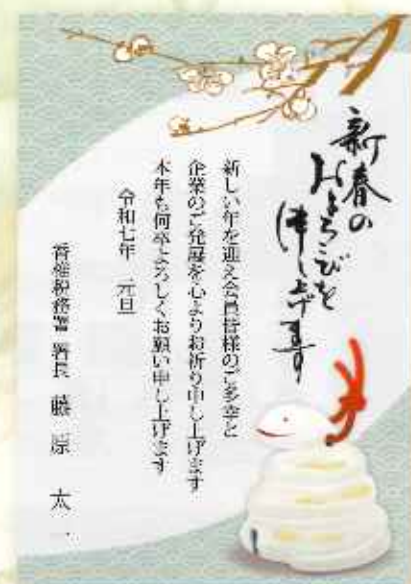 新春の
およろこびを
申し上げます
新しい年を迎え会員皆様のご多幸と
企業のご発展を心よりお祈り申し上げます
本年も何卒よろしくお願い申し上げます
令和七年 元旦
香椎税務署 署長 藤原 太一